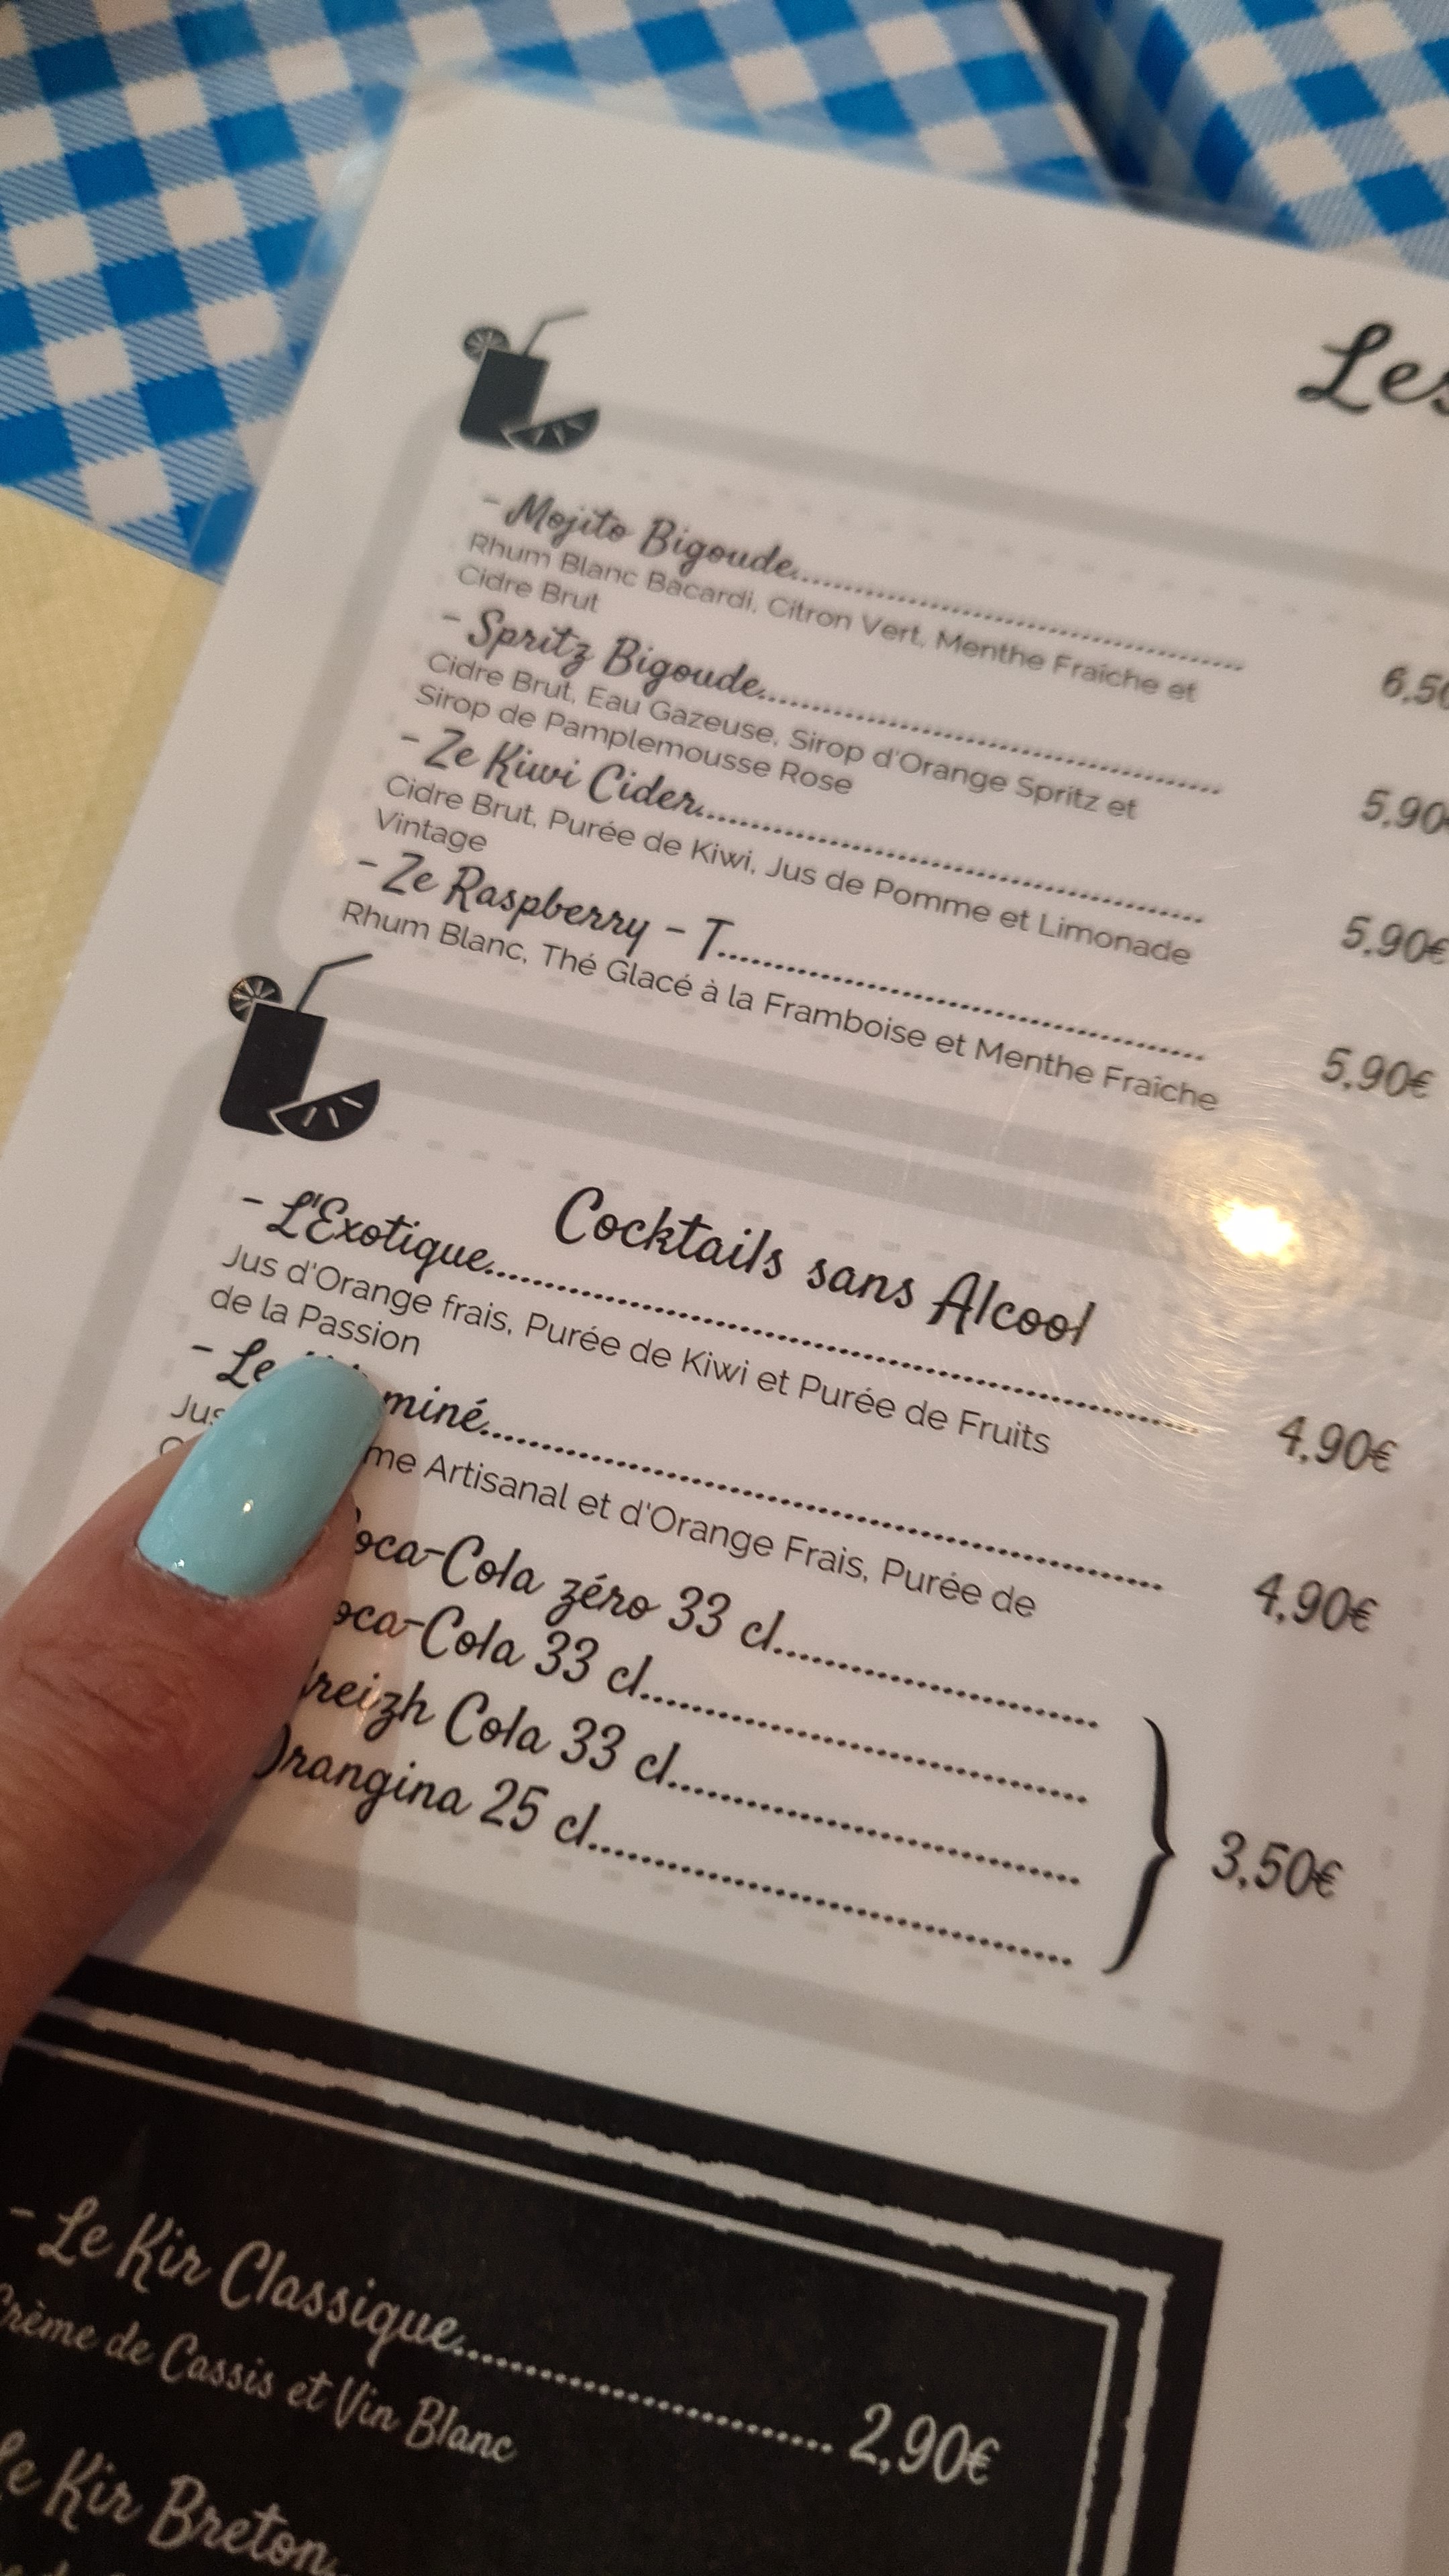 Les
- Mojito Bigoude.......... 6,50
Rhum Blanc Bacardi, Citron Vert, Menthe Fraîche et
Cidre Brut
- Spritz Bigoude.......... 5,90
Cidre Brut, Eau Gazeuse, Sirop d'Orange Spritz et
Sirop de Pamplemousse Rose
- Ze Kiwi Cider.......... 5,90€
Cidre Brut, Purée de Kiwi, Jus de Pomme et Limonade
Vintage
- Ze Raspberry - T.......... 5,90€
Rhum Blanc, Thé Glacé à la Framboise et Menthe Fraîche
Cocktails sans Alcool
- L'Exotique.......... 4,90€
Jus d'Orange frais, Purée de Kiwi et Purée de Fruits
de la Passion
- Le miné.......... 4,90€
Jus me Artisanal et d'Orange Frais, Purée de
oca-Cola zéro 33 cl..........
oca-Cola 33 cl..........
reizh Cola 33 cl.......... 3,50€
Orangina 25 cl..........
- Le Kir Classique.......... 2,90€
Crème de Cassis et Vin Blanc
Le Kir Breton..